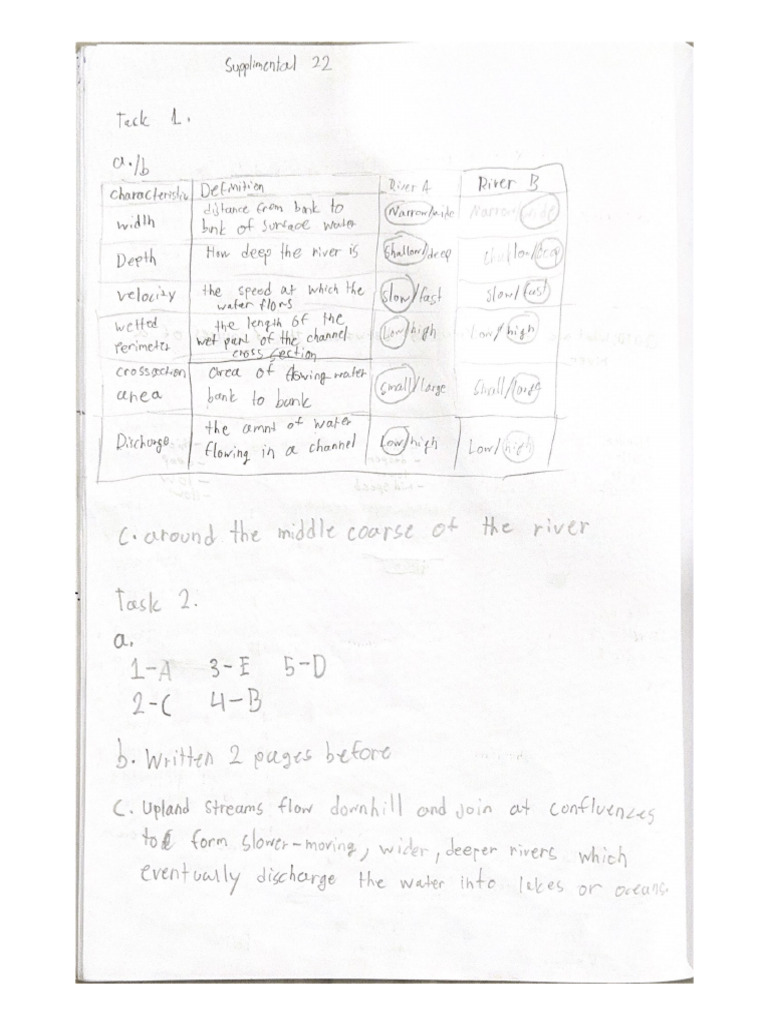 Supplimental 22
Task 1.
a./b
Characteristic Definition River A River B
width distance from bank to bank of surface water Narrow/wide Narrow/wide
Depth How deep the river is Shallow/deep Shallow/deep
velocity the speed at which the water flows slow/fast slow/fast
wetted Perimeter the length of the wet part of the channel cross section Low/high Low/high
crossaction area area of flowing water bank to bank small/large Small/large
Discharge the amnt of water flowing in a channel Low/high Low/high
c. around the middle coarse of the river
Task 2.
a.
1-A 3-E 5-D
2-C 4-B
b. Written 2 pages before
C. Upland streams flow downhill and join at confluences
to form slower-moving, wider, deeper rivers which
eventually discharge the water into lakes or oceans.